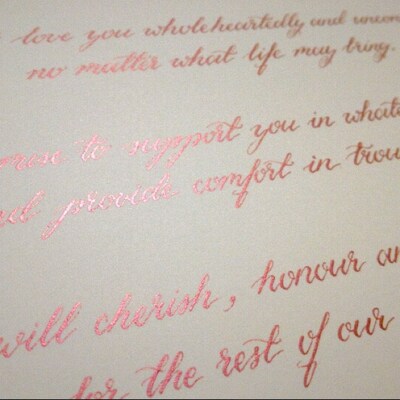 love you wholeheartedly and
no matter what life may bring.
to support you in
provide comfort in
will cherish, honour
for the rest of our